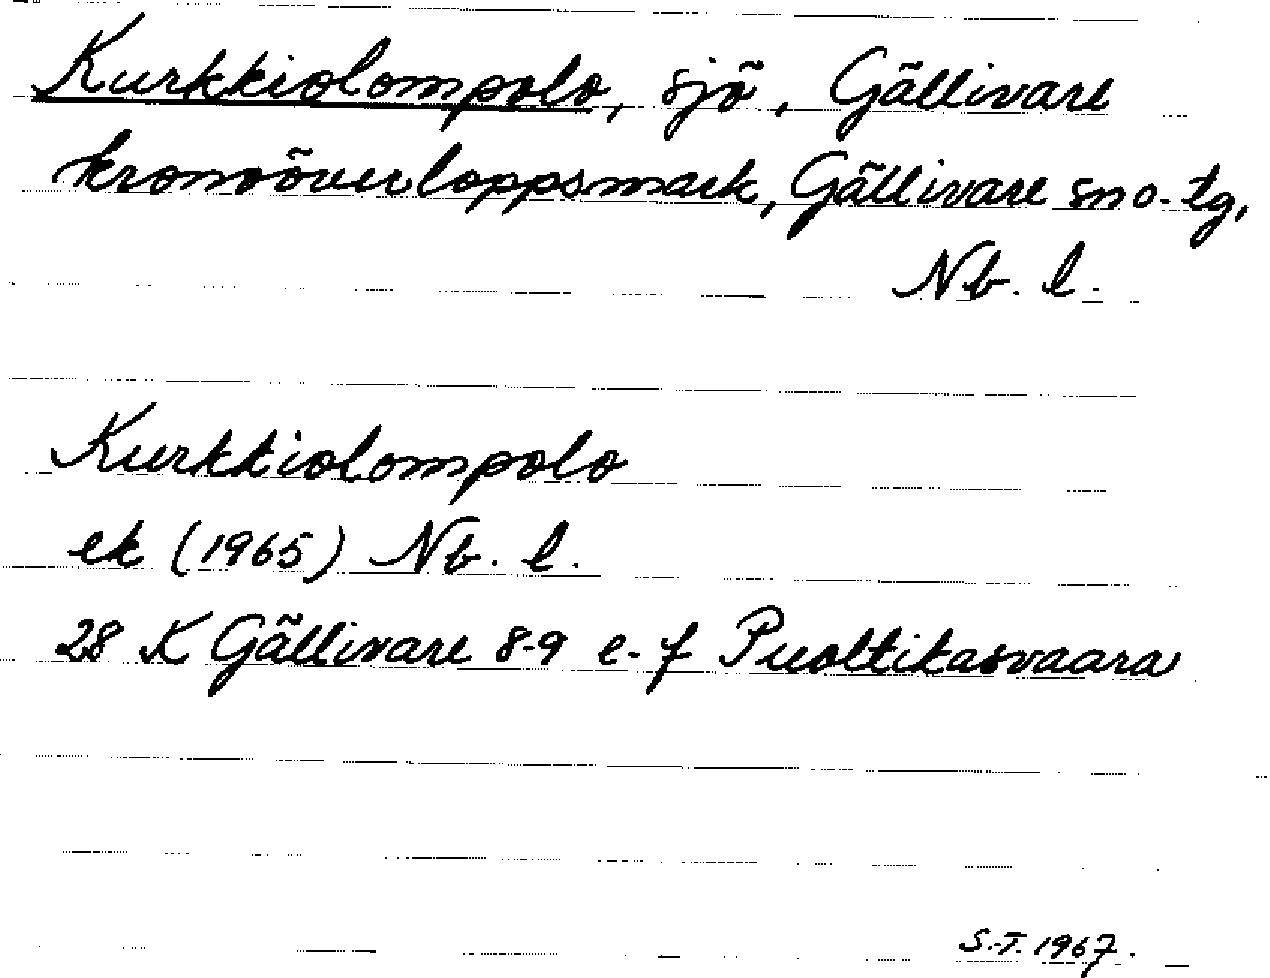 Kurkkiolompolo, sjö, Gällivare
kronoöverloppsmark, Gällivare sn o. tg,
Nb. l.
Kurkkiolompolo
ek (1965) Nb. l.
28 K Gällivare 8-9 e-f Puoltikasvaara
S.-T. 1967.